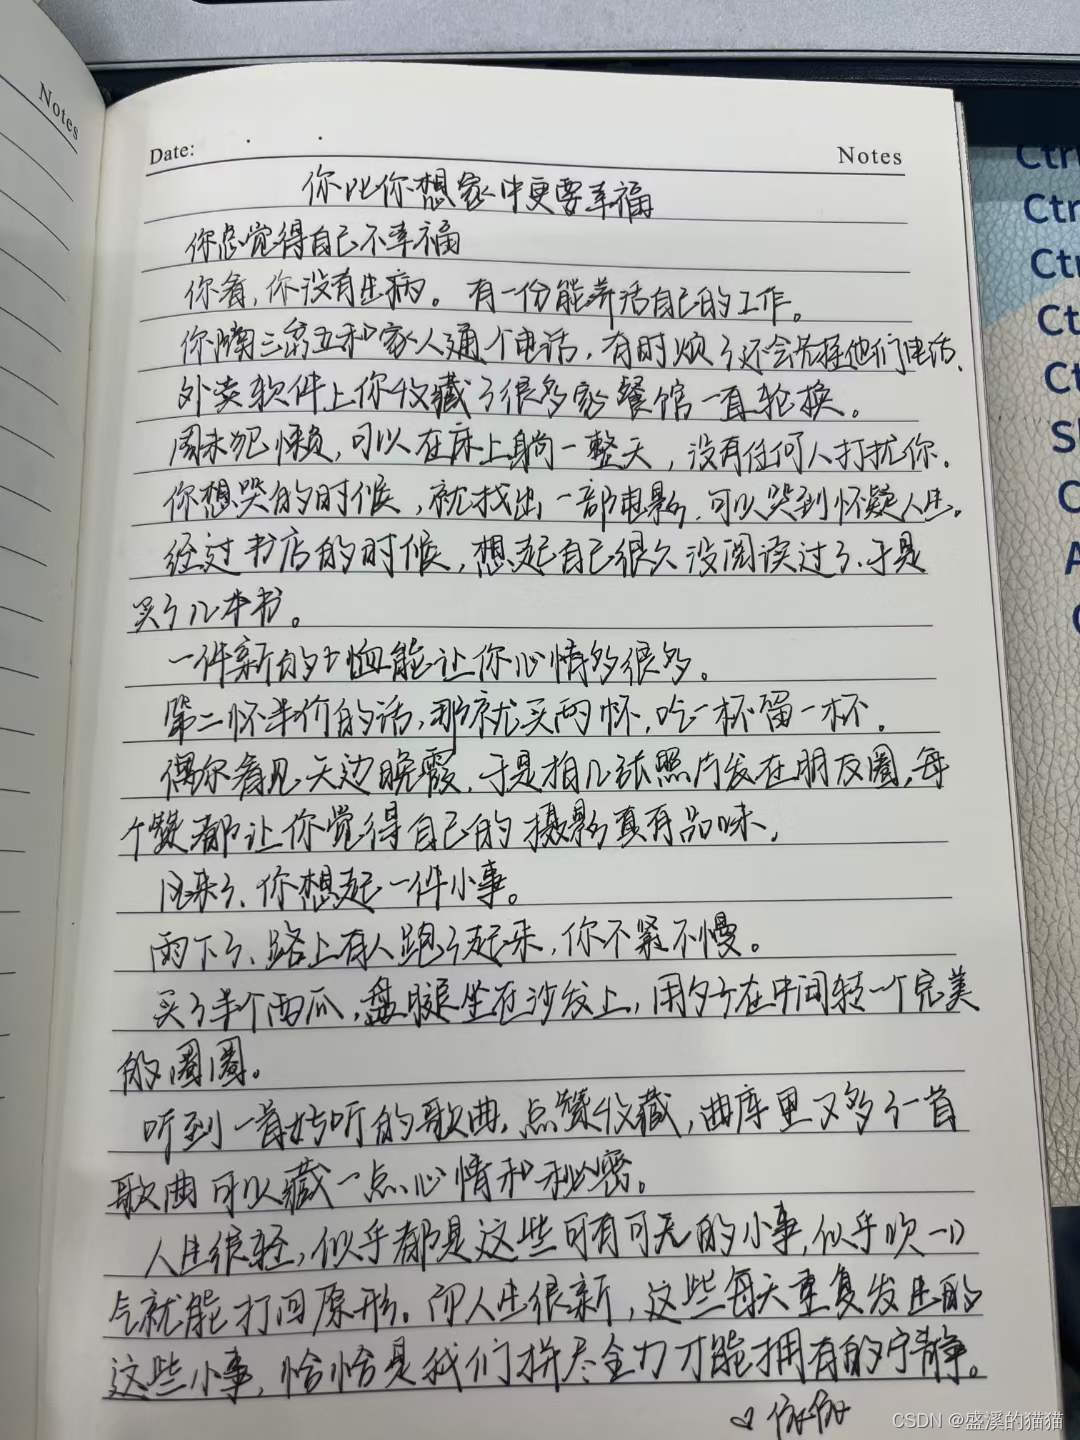 Notes
Date:
Notes
你比你想象中更要幸福
你总觉得自己不幸福
你看,你没有生病。有一份能养活自己的工作。
你隔三岔五和家人通个电话,有时烦了还会先挂他们电话.
外卖软件上你收藏了很多家餐馆一直轮换。
周末犯懒,可以在床上躺一整天,没有任何人打扰你.
你想哭的时候,就找出一部电影,可以哭到怀疑人生。
经过书店的时候,想起自己很久没阅读过了、于是
买了几本书。
一件新的T恤能让你心情好很多。
第二杯半价的话,那就买两杯,吃一杯留一杯.
偶尔看见天边晚霞,于是拍几张照片发在朋友圈,每
个赞都让你觉得自己的摄影真有品味,
风来了、你想起一件小事。
雨下了、路上有人跑了起来,你不紧不慢。
买了半个西瓜,盘腿坐在沙发上,用勺子在中间转一个完美
的圈圈。
听到一首好听的歌曲,点赞收藏,曲库里又多了一首
歌曲可以藏一点心情和秘密。
人生很轻,似乎都是这些可有可无的小事,似乎吹一口
气就能打回原形。而人生很新,这些每天重复发生的
这些小事,恰恰是我们拼尽全力才能拥有的宁静。
Ctrl
Ctr
Ctr
Ct
Ct
S
C
A
CSDN @盛溪的猫猫